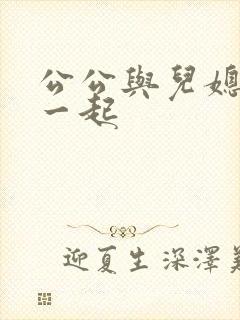 公公與兒媳
一起
迎夏生深澤